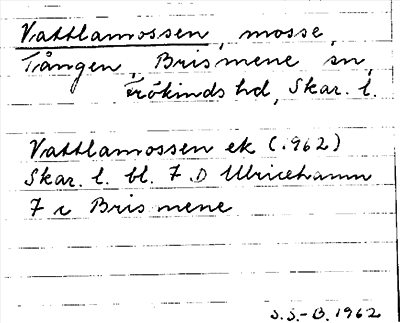 Vattlamossen, mosse,
Tången, Brismene sn,
Frökinds hd, Skar. l.
Vattlamossen ek (.962)
Skar. l. bl. 7 D Ulricehamn
7 c Brismene
S.S.-B. 1962